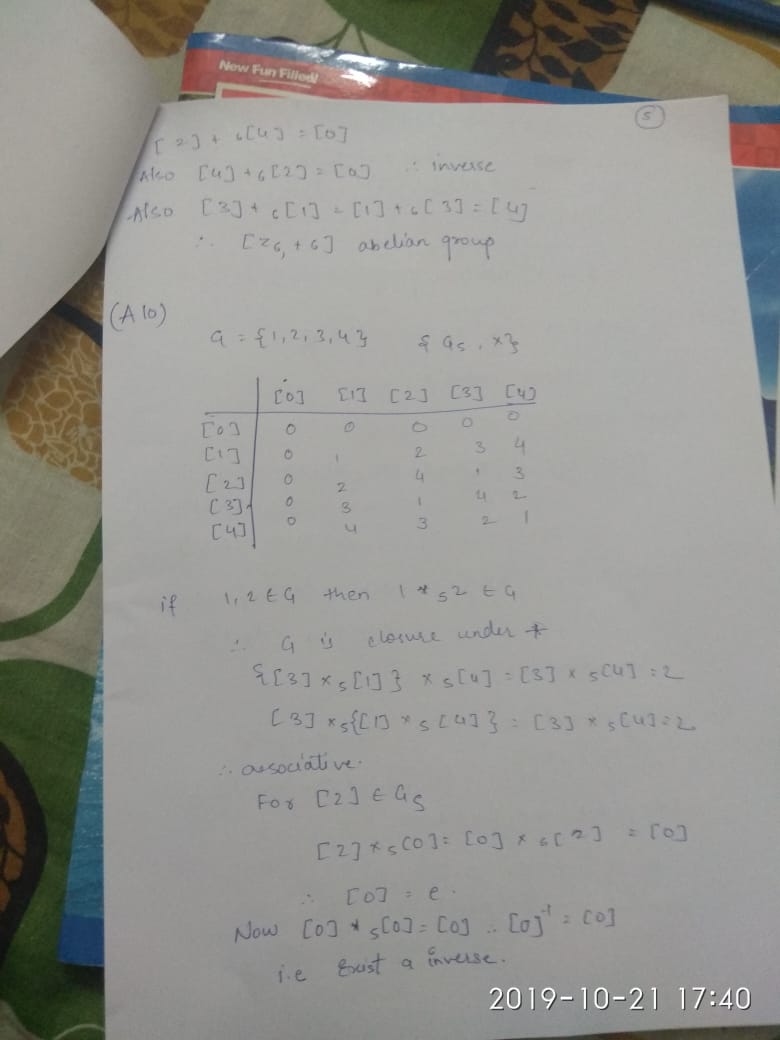 New Fun Filled!
5
[2] + 6[4] = [0]
Also [4] +6[2] = [0] ∴ inverse
Also [3] + 6[1] = [1] + 6[3] = [4]
∴ [Z6, +6] abelian group
(A10)
G = {1,2,3,4} { G5 , x}
[0] [1] [2] [3] [4]
[0] 0 0 0 0 0
[1] 0 1 2 3 4
[2] 0 2 4 1 3
[3] 0 3 1 4 2
[4] 0 4 3 2 1
if 1,2 ∈ G then 1 * 5 2 ∈ G
∴ G is closure under *
{[3] x 5 [1] } x 5[4] = [3] x 5[4] = 2
[3] x5{[1] x 5 [4] } = [3] x 5[4] = 2
∴ associative.
For [2] ∈ G5
[2] x 5[0] = [0] x 5[2] = [0]
∴ [0] = e.
Now [0] * 5[0] = [0] ∴ [0]⁻¹ = [0]
i.e Exist a inverse.
2019-10-21 17:40